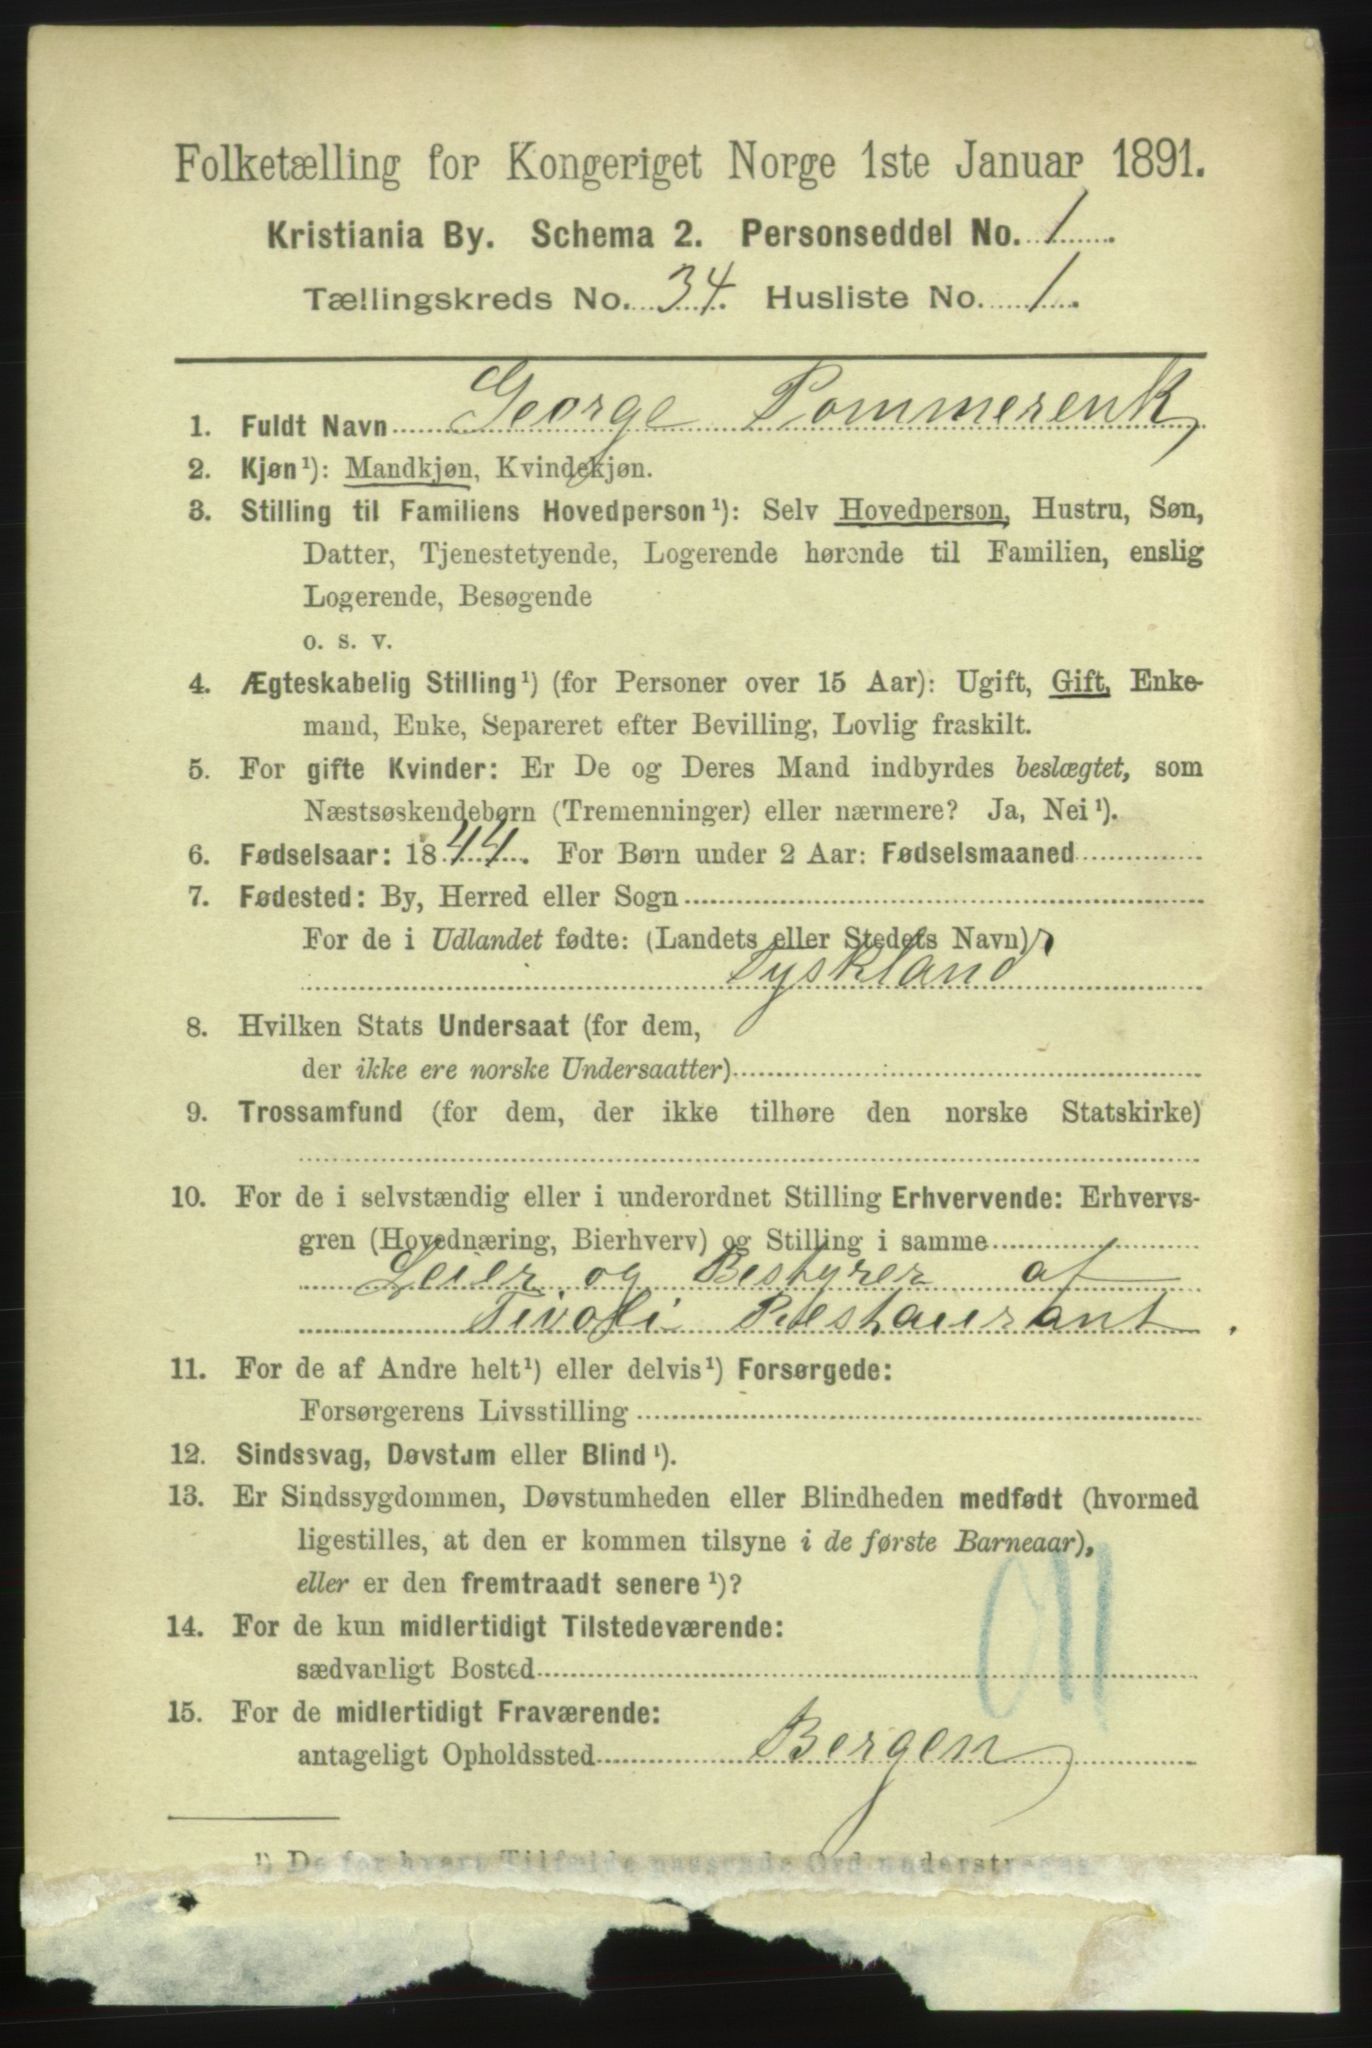 Folketælling for Kongeriget Norge 1ste Januar 1891.
Kristiania By. Schema 2. Personseddel No. 1
Tællingskreds No. 34. Husliste No. 1.
1. Fuldt Navn George Pommerenk
2. Kjøn¹): Mandkjøn, Kvindekjøn.
3. Stilling til Familiens Hovedperson¹): Selv Hovedperson, Hustru, Søn,
Datter, Tjenestetyende, Logerende hørende til Familien, enslig
Logerende, Besøgende
o. s. v.
4. Ægteskabelig Stilling¹) (for Personer over 15 Aar): Ugift, Gift, Enke-
mand, Enke, Separeret efter Bevilling, Lovlig fraskilt.
5. For gifte Kvinder: Er De og Deres Mand indbyrdes beslægtet, som
Næstsøskendebørn (Tremenninger) eller nærmere? Ja, Nei¹).
6. Fødselsaar: 1844. For Børn under 2 Aar: Fødselsmaaned
7. Fødested: By, Herred eller Sogn
For de i Udlandet fødte: (Landets eller Stedets Navn)
Tyskland
8. Hvilken Stats Undersaat (for dem,
der ikke ere norske Undersaatter)
9. Trossamfund (for dem, der ikke tilhøre den norske Statskirke)
10. For de i selvstændig eller i underordnet Stilling Erhvervende: Erhvervs-
gren (Hovednæring, Bierhverv) og Stilling i samme
Leier og Bestyrer af
Tivoli Restaurant.
11. For de af Andre helt¹) eller delvis¹) Forsørgede:
Forsørgerens Livsstilling
12. Sindssvag, Døvstum eller Blind¹).
13. Er Sindssygdommen, Døvstumheden eller Blindheden medfødt (hvormed
ligestilles, at den er kommen tilsyne i de første Barneaar),
eller er den fremtraadt senere¹)?
14. For de kun midlertidigt Tilstedeværende:
sædvanligt Bosted
15. For de midlertidigt Fraværende:
antageligt Opholdssted Bergen
¹) De for hvert Tilfælde passende Ord understreges.